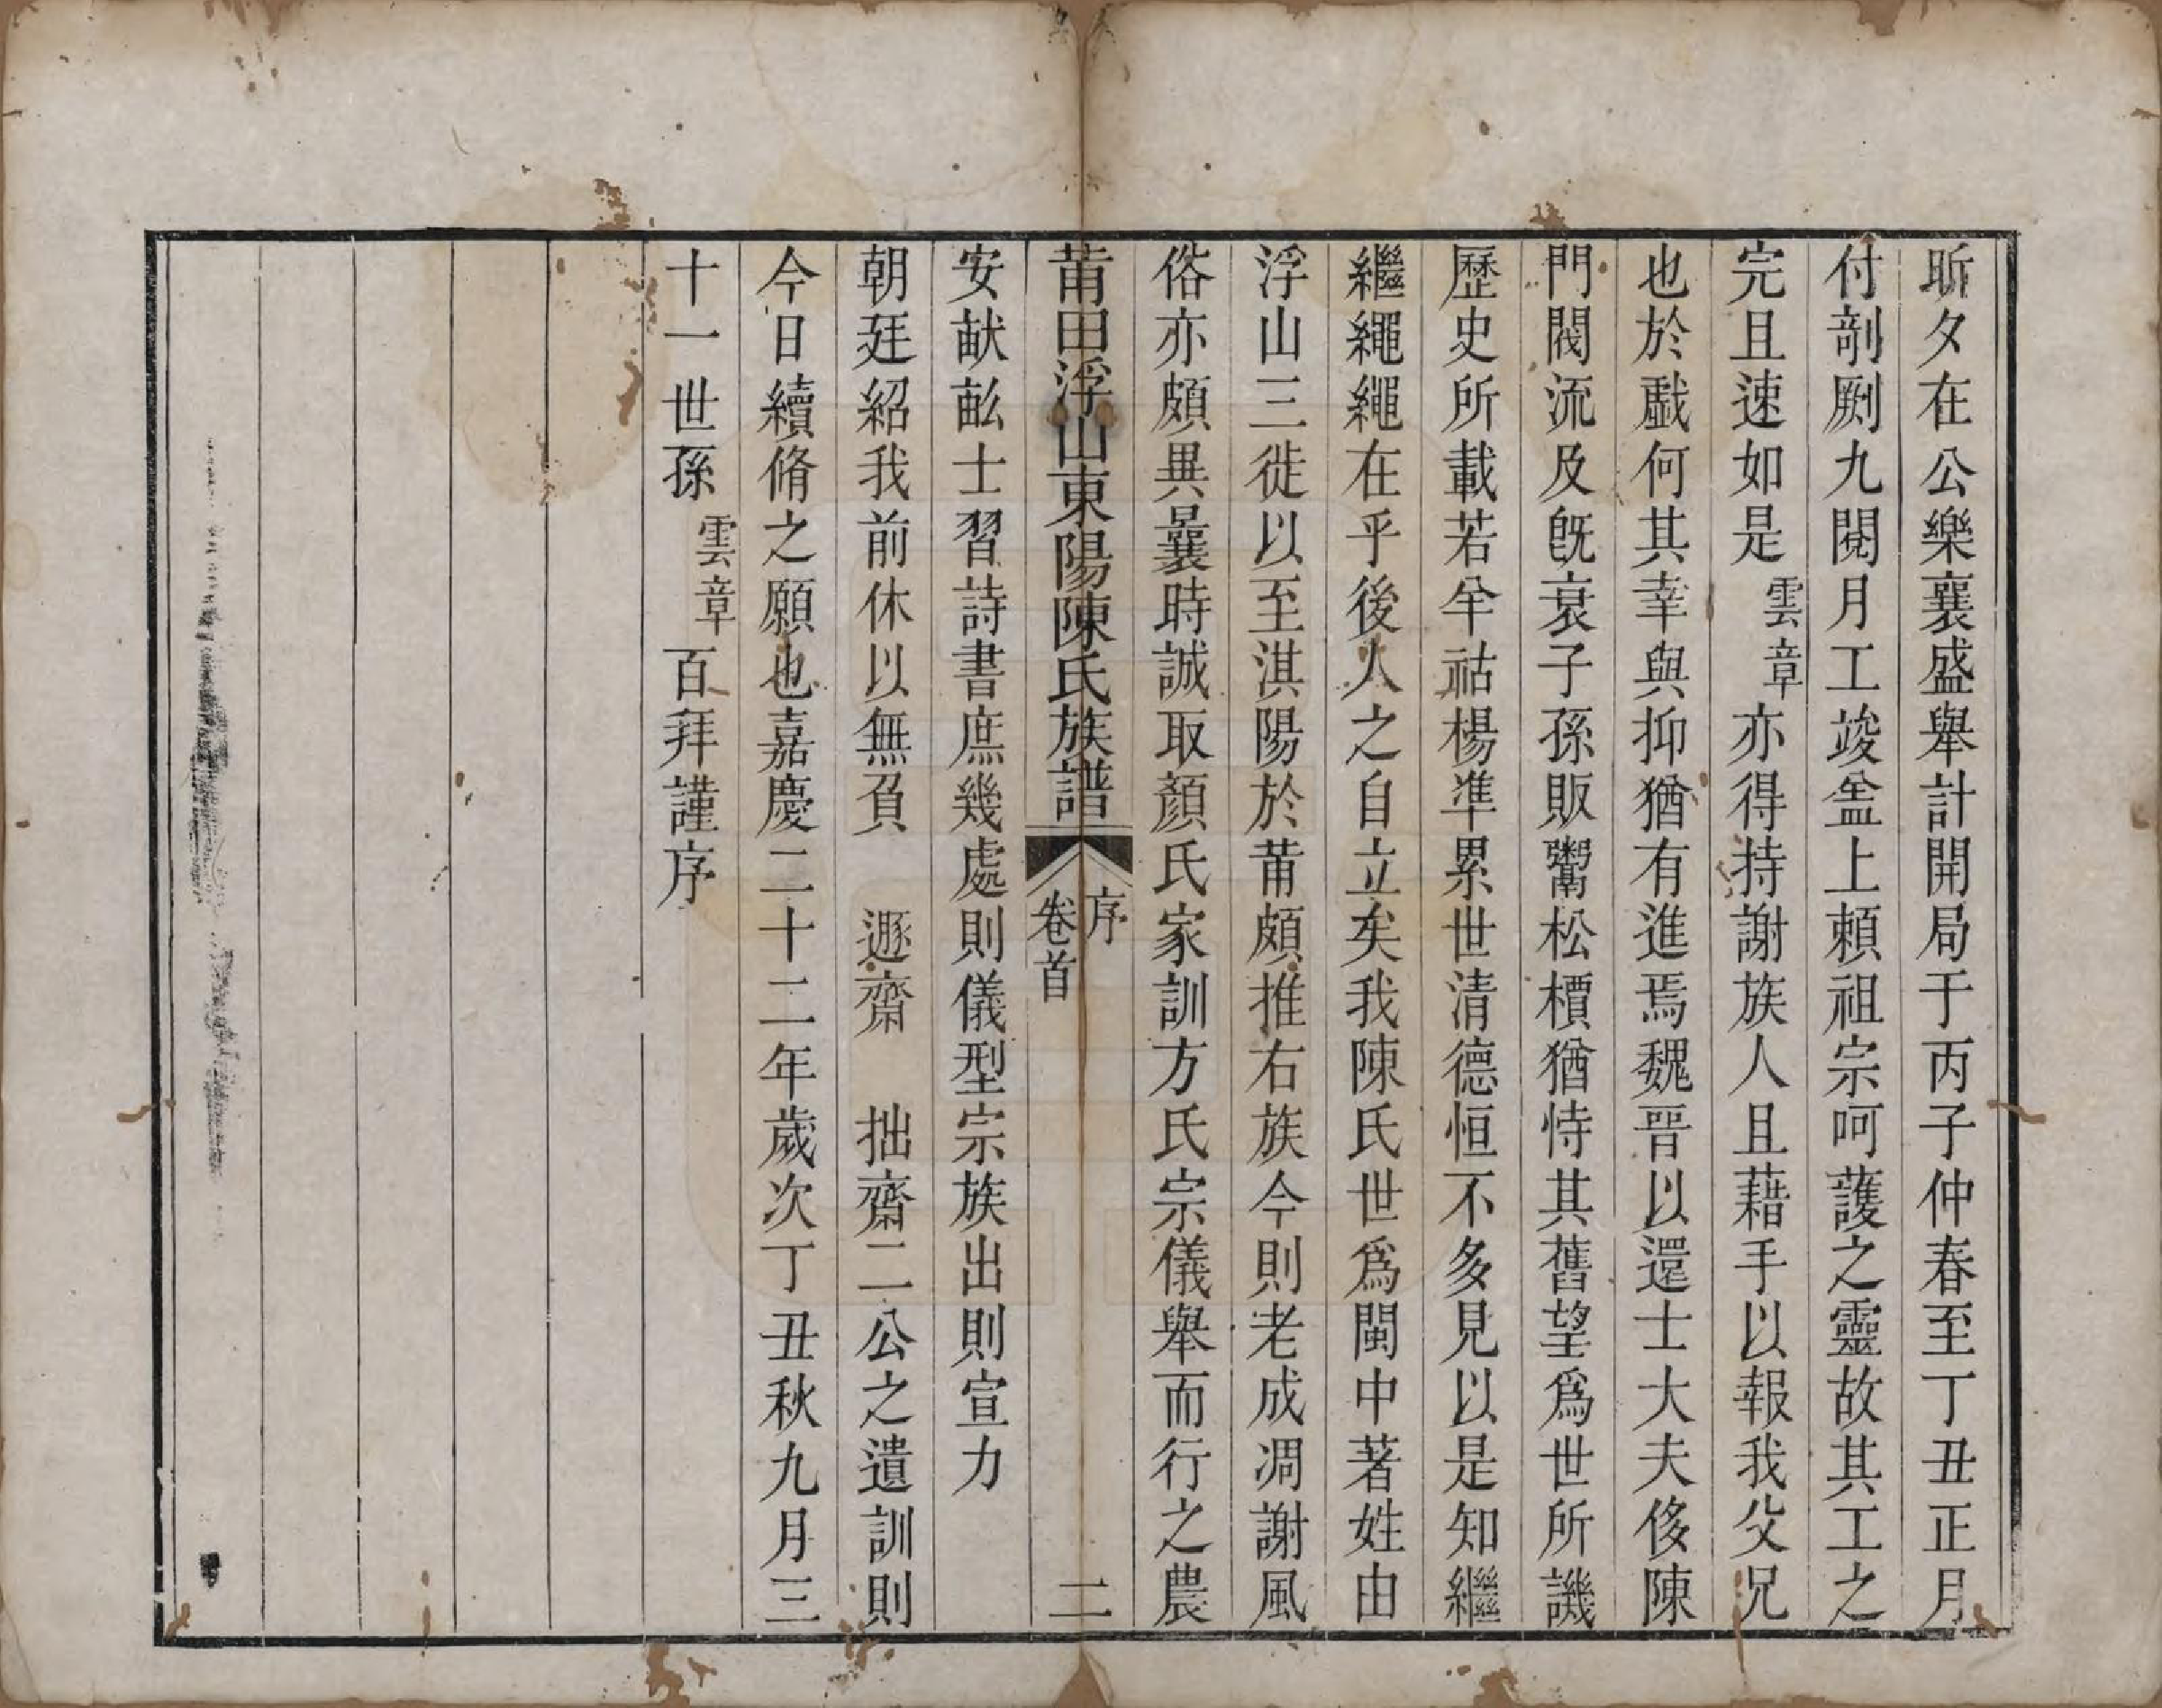 昕夕在公樂襄盛舉計開局于丙子仲春至丁丑正月
付剞劂九閱月工竣盆上賴祖宗呵護之靈故其工之
完且速如是雲章亦得持謝族人且藉手以報我父兄
也於戲何其幸與抑猶有進焉魏晉以還士大夫侈陳
門閥流及旣衰子孫販鬻松檟猶恃其舊望爲世所譏
歷史所載若羊祜楊準累世清德恒不多見以是知繼
繼繩繩在乎後人之自立矣我陳氏世爲閩中著姓由
浮山三徙以至淇陽於莆頗推右族今則老成凋謝風
俗亦頗異曩時誠取顏氏家訓方氏宗儀舉而行之農
莆田浮山東陽陳氏族譜
序
卷首
二
安畎畝士習詩書庶幾處則儀型宗族出則宣力
朝廷紹我前休以無負 遯齋 拙齋二公之遺訓則
今日續脩之願也嘉慶二十二年歲次丁丑秋九月三
十一世孫雲章百拜謹序